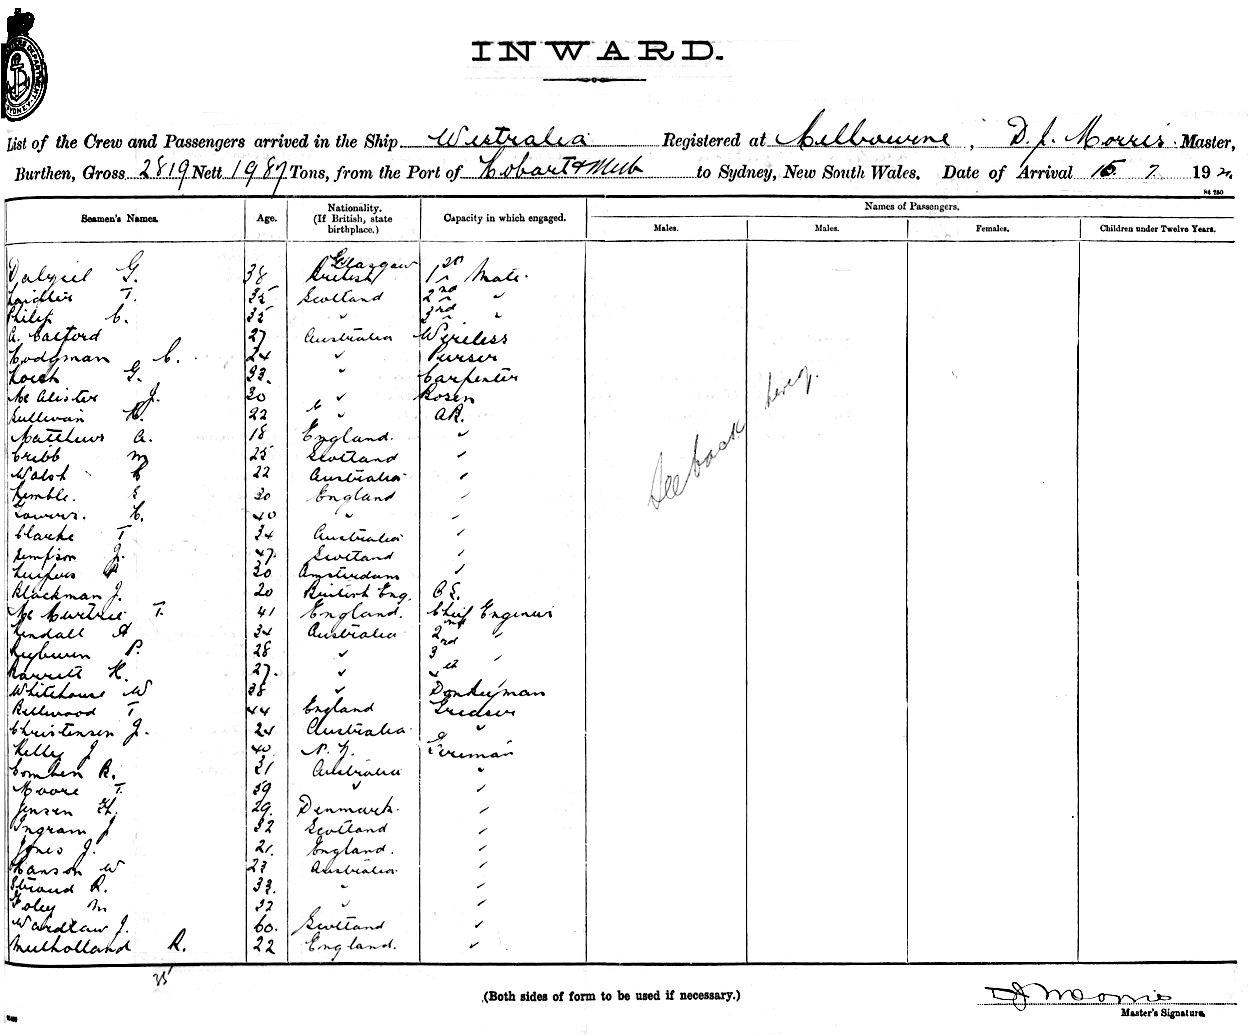 INWARD.
List of the Crew and Passengers arrived in the Ship Westralia Registered at Melbourne, D. J. Morris Master,
Burthen, Gross 2819 Nett 1987 Tons, from the Port of Hobart & Melb to Sydney, New South Wales. Date of Arrival 15 7 192
Seamen's Names. Age. Nationality. (If British, state birthplace.) Capacity in which engaged. Names of Passengers.
Males. Males. Females. Children under Twelve Years.
Glasgow
Dalziel G. 38 British 1st Mate
Laidler T. 35 Scotland 2nd "
Philip C. 35 " 3rd "
A. Calford 27 Australia Wireless
Hodgman C. 24 " Purser
Loich G. 33. " Carpenter
Mc Alister J. 30 " Bosen
Sullivan H. 22 " AB.
Matthews A. 18 England. "
Cribb M 25 Scotland "
Walsh 22 Australia "
Kemble. E 30 England "
Towers. C. 40 " "
Clarke T 34 Australia "
Sempson J. 47. Scotland "
Kuipers P 30 Amsterdam "
Blackman J. 20 British Eng. O S.
Mc Murtrie T. 41 England. Chief Engineer
Kendall A 34 Australia 2nd "
Ryburn P. 28 " 3rd "
Barrett H. 27. " 4th
Whitehouse W 38 " Donkeyman
Bellwood T 44 England Greaser
Christensen J. 24 Australia "
Kelly J 40 N. Z. Fireman
Comben R. 31 Australia "
Moore T. 39 " "
Jensen H. 29. Denmark. "
Ingram J 32 Scotland "
Jones J. 21. England. "
Hanson W 23 Australia "
Stroud R. 33. " "
Foley M 32 " "
Wardlaw J. 60. Scotland "
Mulholland R. 22 England. "
See back
35
(Both sides of form to be used if necessary.)
D J Morris
Master's Signature.